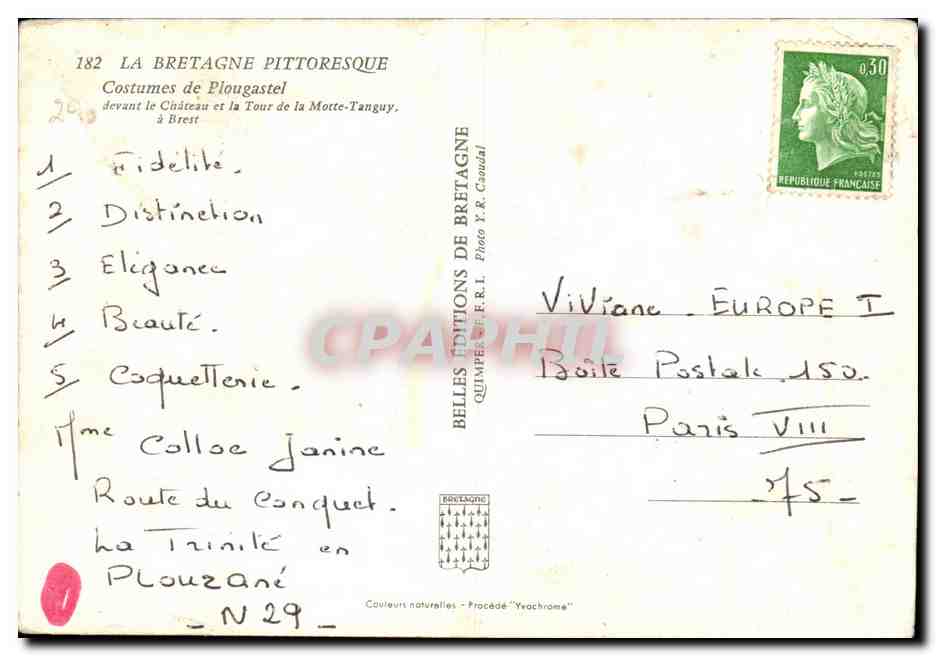 182 LA BRETAGNE PITTORESQUE
Costumes de Plougastel
devant le Château et la Tour de la Motte-Tanguy,
à Brest
1 Fidélité.
2 Distinction
3 Elégance
4 Beauté.
5 Coquetterie.
Mme Colloc Janine
Route du Conquet.
La Trinité en
PLouzané
_ N 29 _
BELLES ÉDITIONS DE BRETAGNE
QUIMPER - E.F.R.I. Photo Y. R. Caoudal
BRETAGNE
Couleurs naturelles - Procédé "Yvachrome"
0,30
POSTES
REPUBLIQUE FRANÇAISE
ViViane - EUROPE I
Boîte Postale 150.
Paris VIII
_ 75 _
CPAPHIL